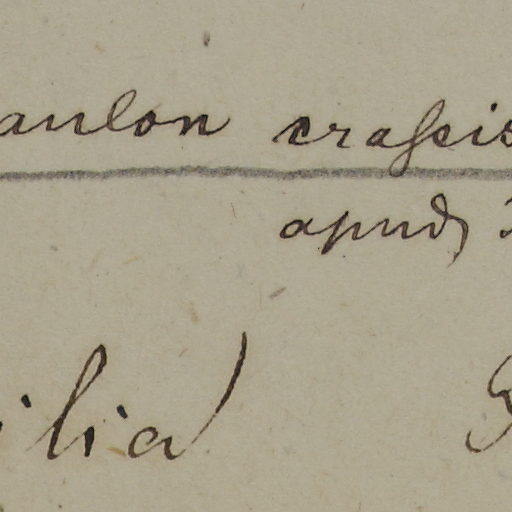 aulon crassis
apud
ilia